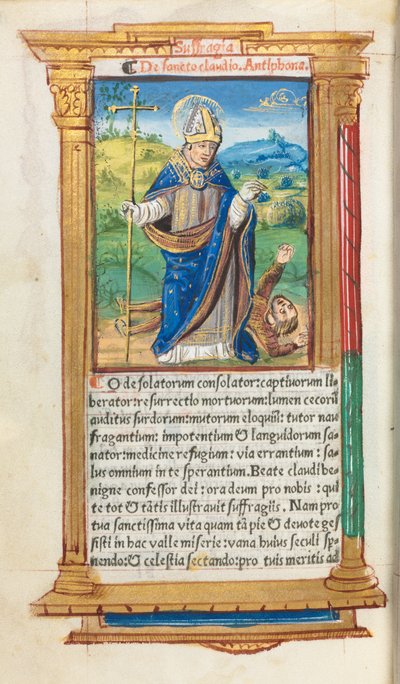 Suffragia
¶ De sancto claudio. Antiphona.
O desolatorum consolator: captiuorum li
berator: resurrectio mortuorum: lumen cecorū
auditus surdorum: mutorum eloquiū: tutor nau
fragantium: impotentium & languidorum sa
nator: medicine refugium: via errantium: sa
lus omnium in te sperantium. Beate claudi be
nigne confessor dei: ora deum pro nobis: qui
te tot & tātis illustrauit suffragiis. Nam pro
tua sanctissima vita quam tā pie & deuote ges
sisti in hac valle miserie: vana huius seculi sp̄
nendo: & celestia sectando: pro tuis meritis ad